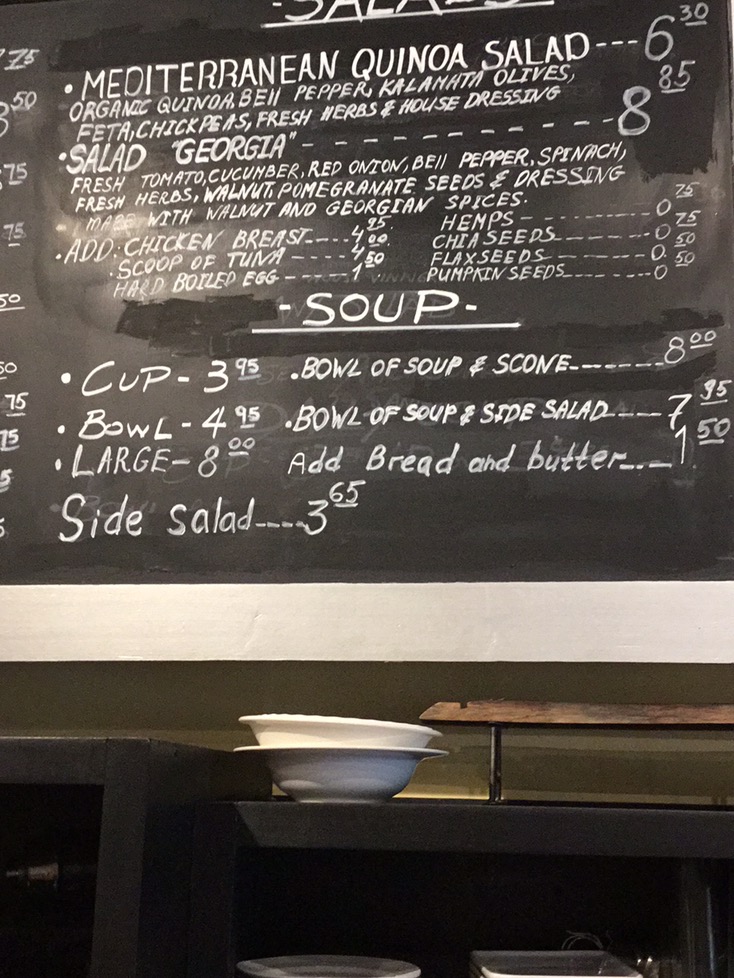 SALADS
• MEDITERRANEAN QUINOA SALAD --- 6 30
ORGANIC QUINOA, BEll PEPPER, KALAMATA OLIVES,
FETA, CHICKPEAS, FRESH HERBS & HOUSE DRESSING
• SALAD "GEORGIA" - - - - - - - - - 8 85
FRESH TOMATO, CUCUMBER, RED ONION, BEll PEPPER, SPINACH,
FRESH HERBS, WALNUT, POMEGRANATE SEEDS & DRESSING
MADE WITH WALNUT AND GEORGIAN SPICES.
• ADD: CHICKEN BREAST ---- 4 95
• SCOOP OF TUNA ----- 4 00
HARD BOILED EGG ------ 1 50
HEMPS - -------- 0 75
CHIA SEEDS -------- 0 75
FLAXSEEDS -------- 0. 50
PUMPKIN SEEDS ------- 0 50
- SOUP -
• CUP - 3 95
• BOWL - 4 95
• LARGE - 8 00
• BOWL OF SOUP & SCONE ------- 8 00
• BOWL OF SOUP & SIDE SALAD ---- 7 95
Add Bread and butter --- 1 50
Side salad ---- 3 65
75
50
75
75
50
50
75
75